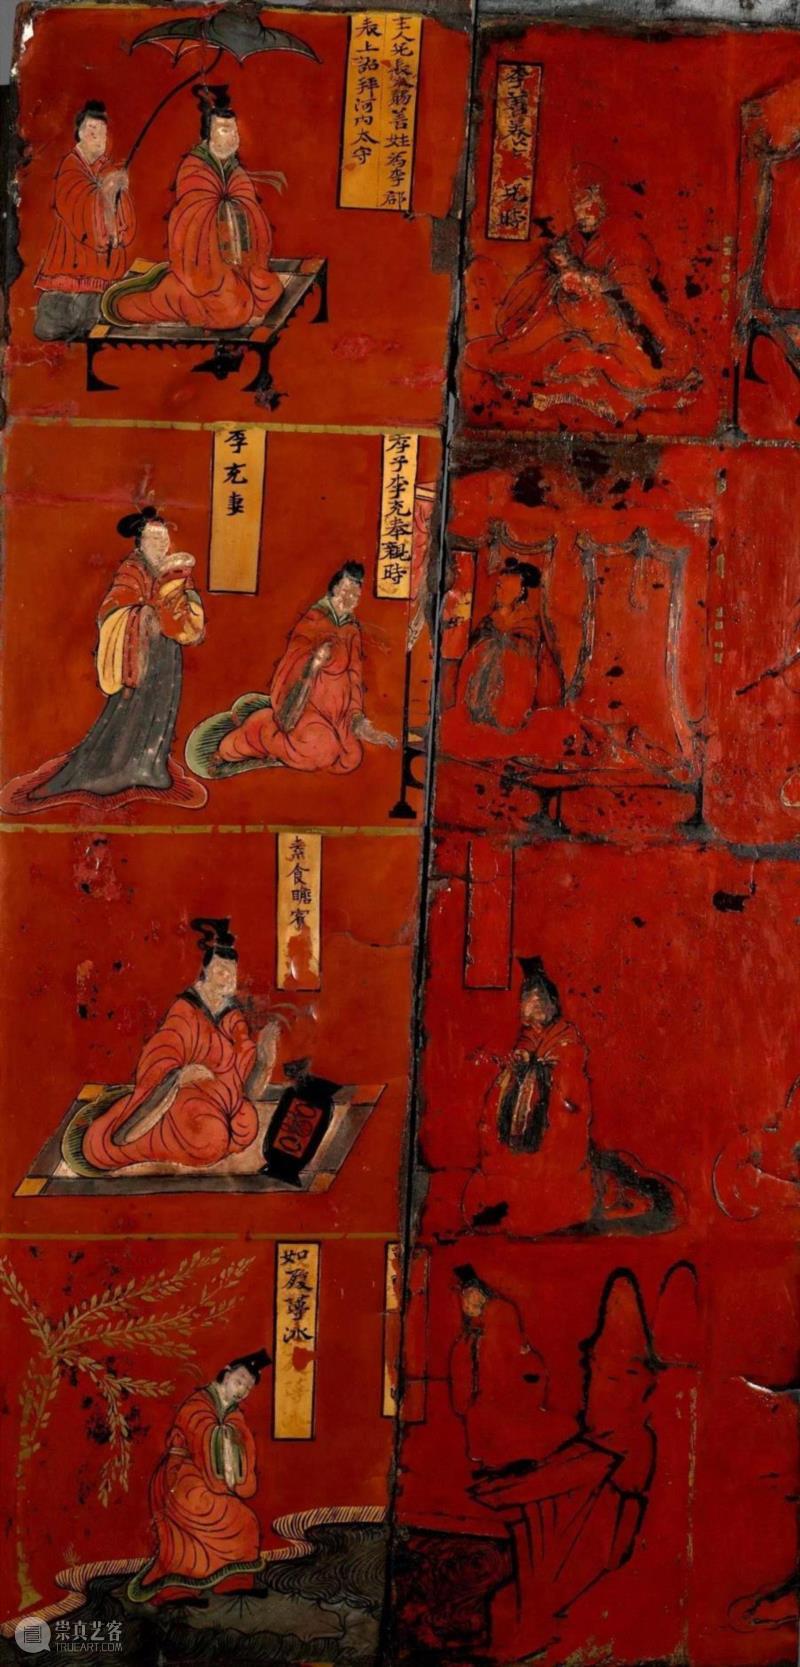 李善養兄時
主人死長弱善姓為李郡
表上詔拜河内太守
孝子李充奉親時
李充妻
素食贍賓
如履薄冰
崇真艺客
TRUEART.COM